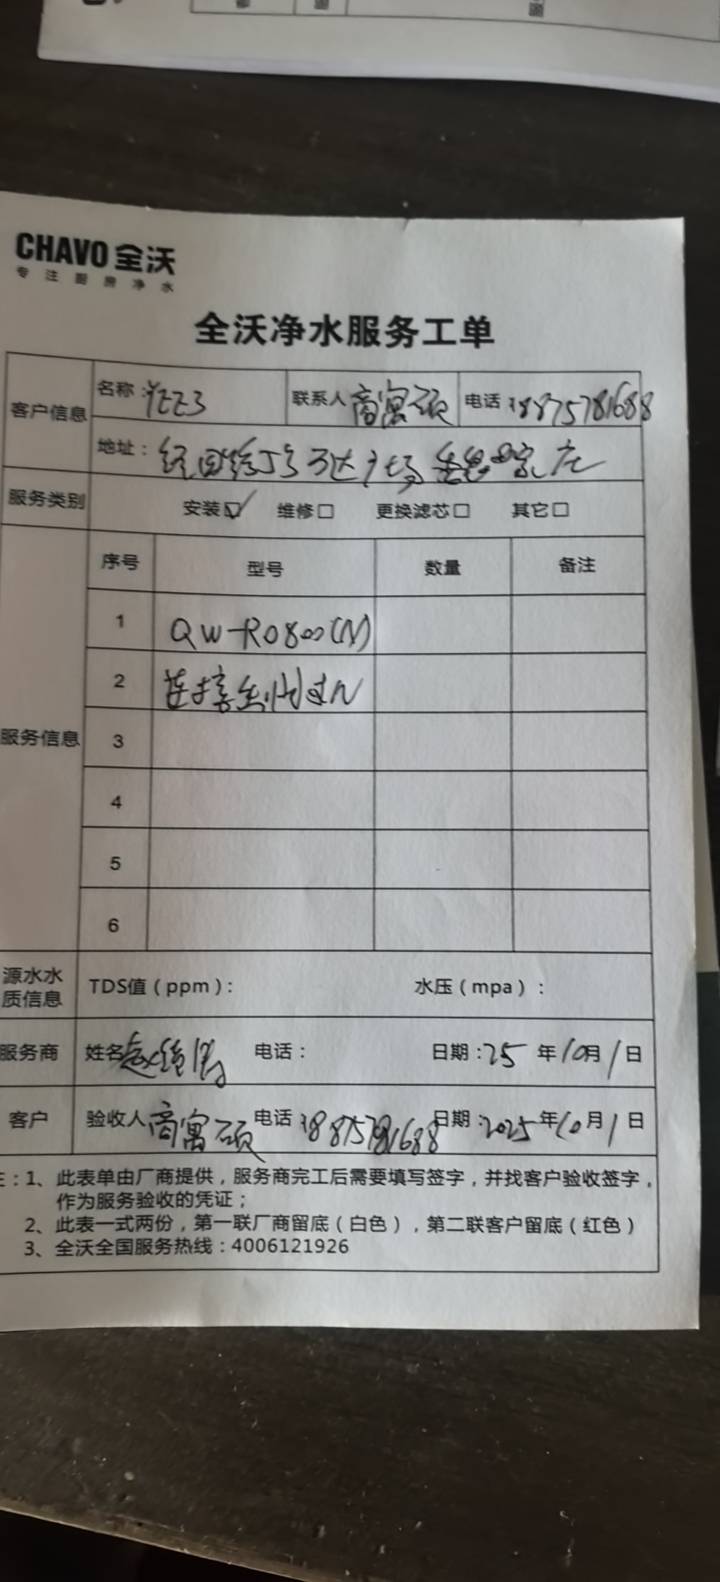 CHAVO 全沃
专注厨房净水
全沃净水服务工单
客户信息
名称：
联系人 商寓硕
电话 18875781688
地址：
服务类别
安装☑ 维修□ 更换滤芯□ 其它□
服务信息
序号 型号 数量 备注
1 QW-RO800(N)
2
3
4
5
6
源水水质信息
TDS值（ppm）： 水压（mpa）：
服务商 姓名 电话： 日期：25 年 10 月 1 日
客户 验收人 商寓硕 电话 18875781688 日期：2025 年 10 月 1 日
：1、此表单由厂商提供，服务商完工后需要填写签字，并找客户验收签字，
作为服务验收的凭证；
2、此表一式两份，第一联厂商留底（白色），第二联客户留底（红色）
3、全沃全国服务热线：4006121926